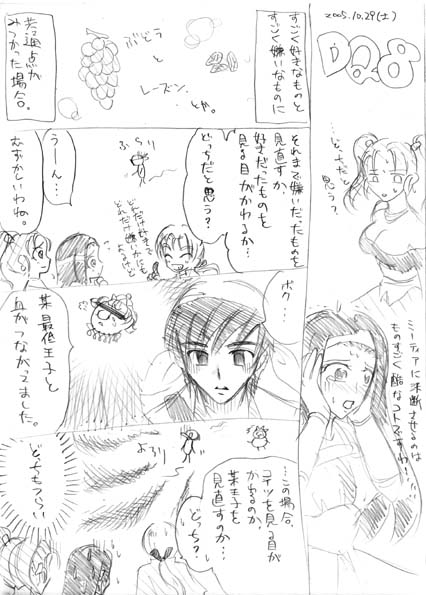 2005.10.29(土)
DQ8
…どっちだと
思う？
ミーティアに決断させるのは
ものすごく酷なコトですわ
すごく好きなものと
すごく嫌いなものに
ぶどう
と
レーズン、
とか。
共通点が
みつかった場合。
それまで嫌いだったものを
見直すか、
好きだったものを
見る目がかわるか…
どっちだと思う？
ぷらり
どれだけ好きで
どれだけ嫌いかにも
よるけど
うーん…
むずかしいわね。
ボク…
某最低王子と
血がつながってました。
…この場合、
コイツを見る目が
かわるのか、
某王子を
見直すのか…
どっち？
よろり
どっちもつらい